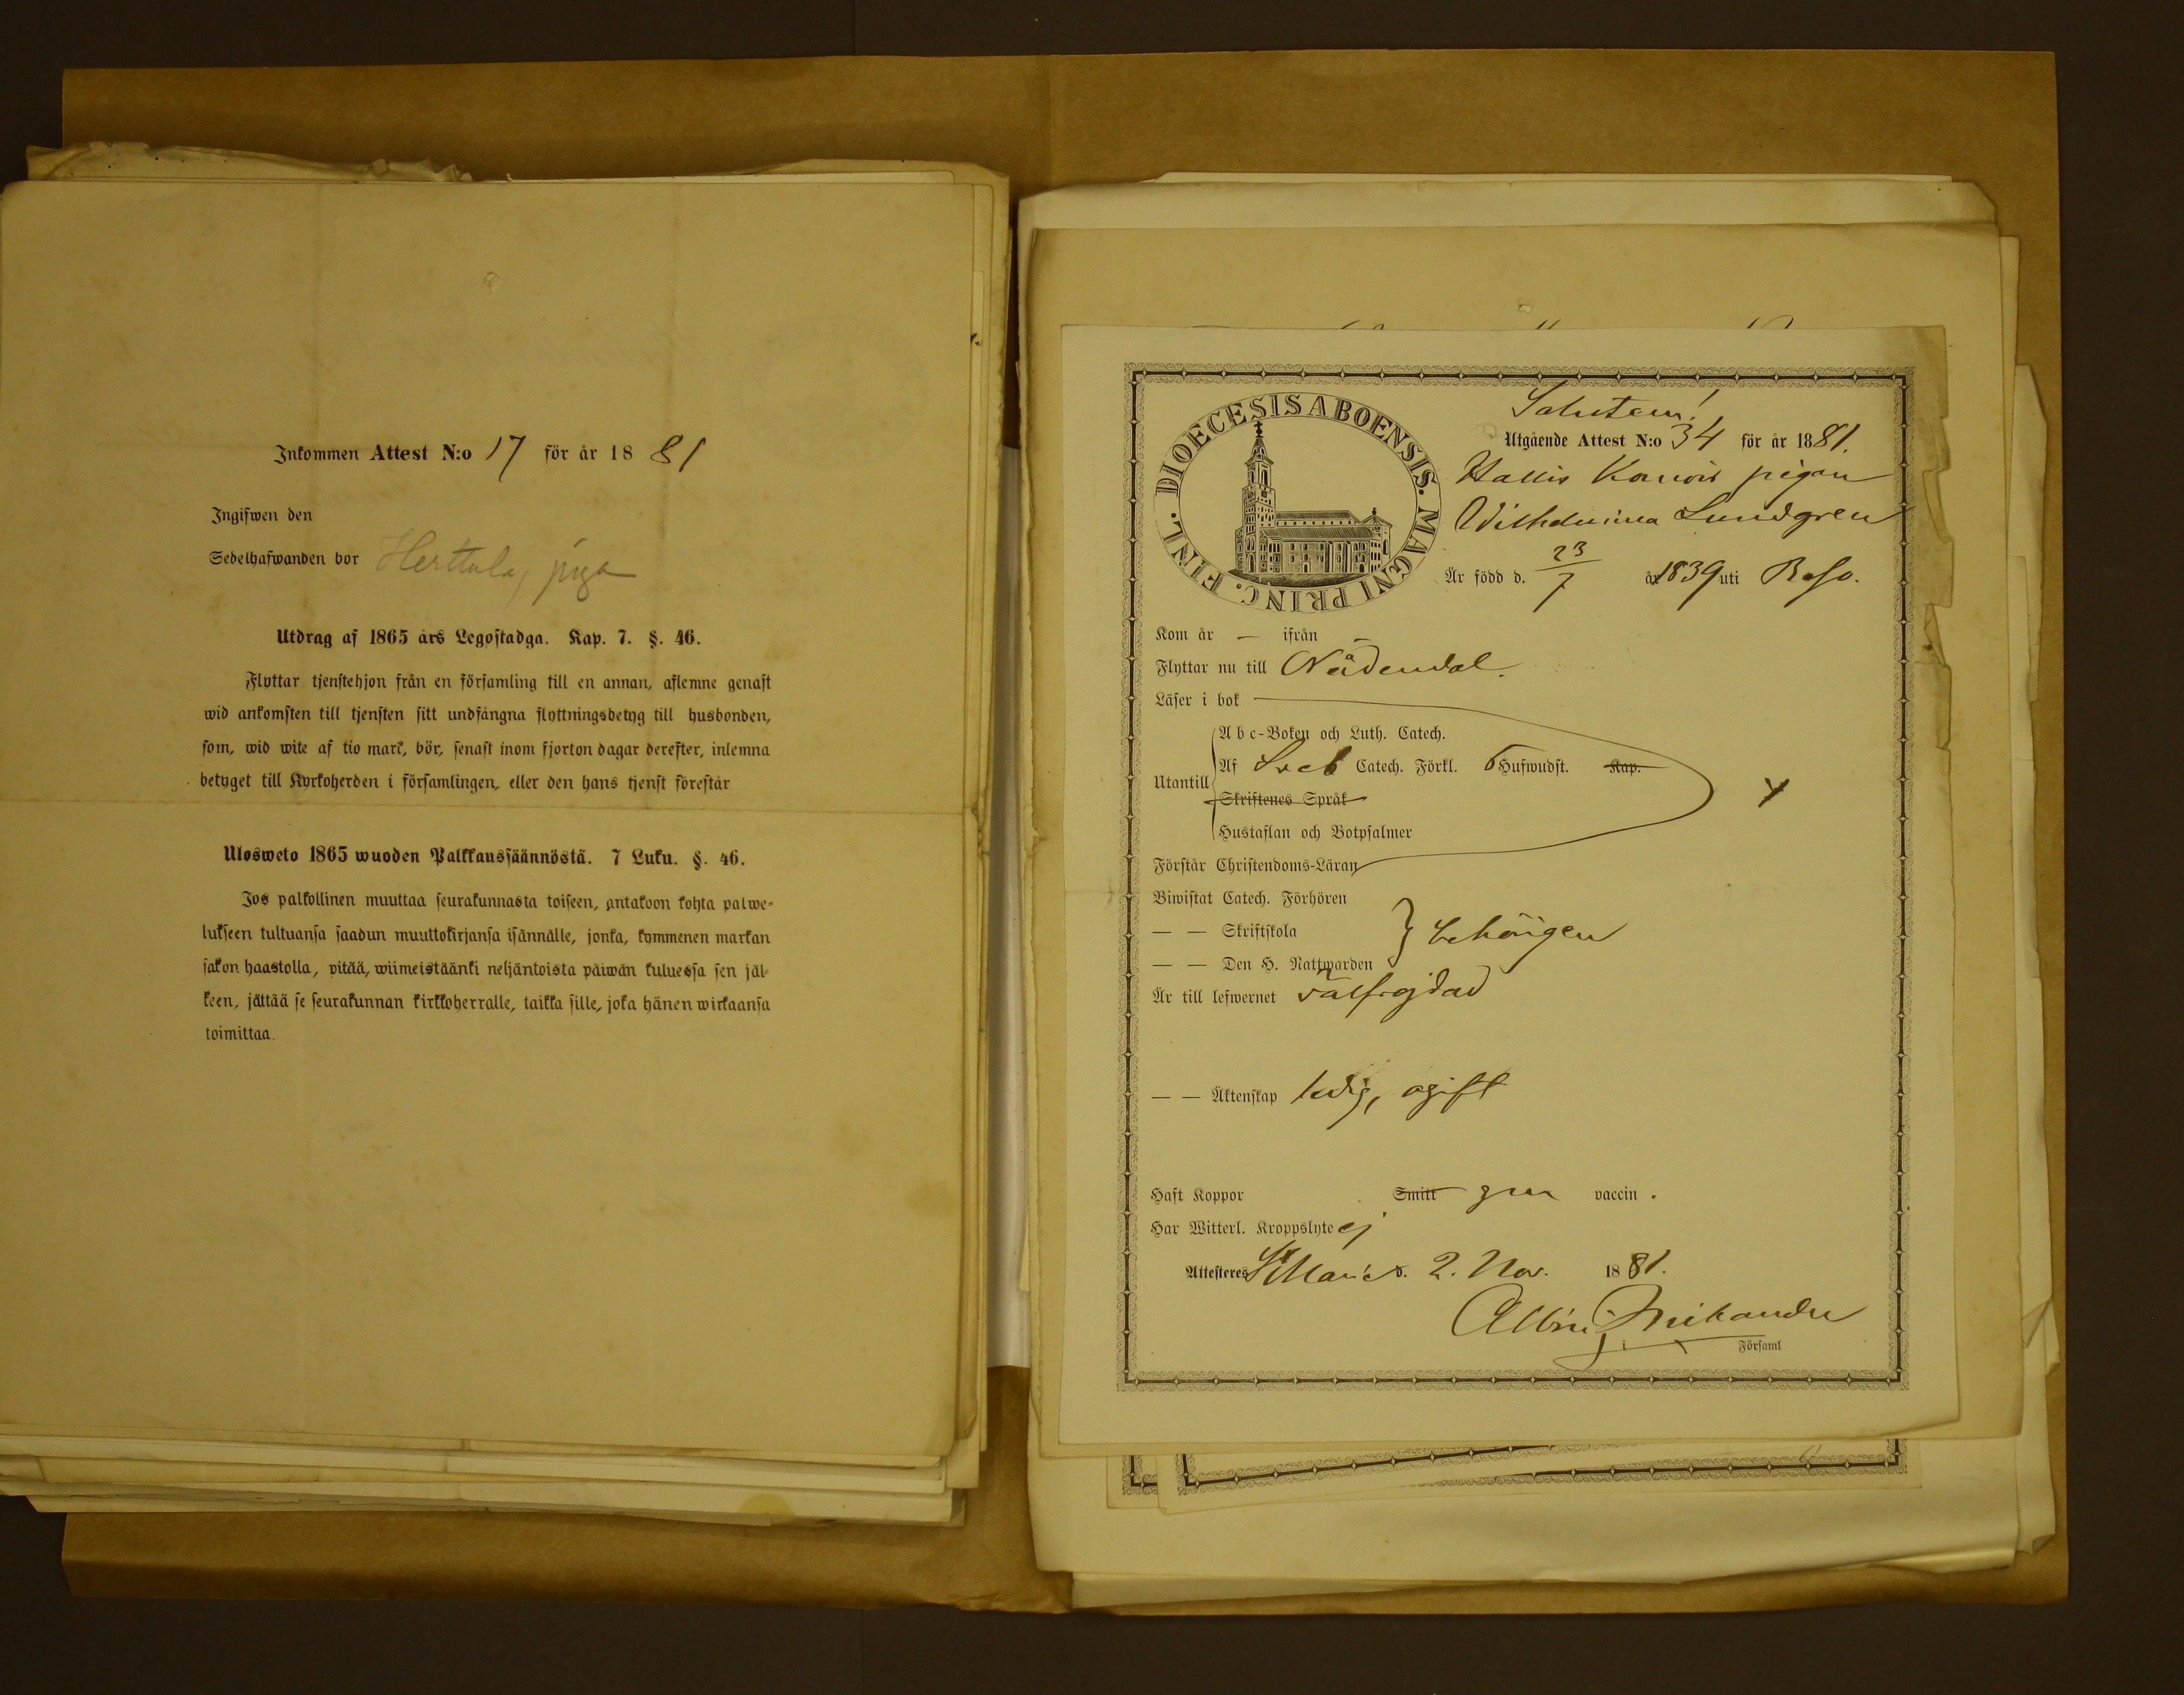 Inkommen Attest N:o 17 för år 1881
Ingifwen den
Sedelhafwanden bor Herttula, piga
Utdrag af 1865 års Legostadga. Kap. 7. §. 46.
Flyttar tjenstehjon från en församling till en annan, aflemne genast
wid ankomsten till tjensten sitt undfångna flyttningsbetyg till husbonden,
som, wid wite af tio mark, bör, senast inom fjorton dagar derefter, inlemna
betyget till Kyrkoherden i församlingen, eller den hans tjenst förestår
Ulosweto 1865 wuoden Palkkaussäännöstä. 7 Luku. §. 46.
Jos palkollinen muuttaa seurakunnasta toiseen, antakoon kohta palwe-
lukseen tultuansa saadun muuttokirjansa isännälle, jonka, kymmenen markan
sakon haastolla, pitää, wiimeistäänki neljäntoista päiwän kuluessa sen jäl-
keen, jättää se seurakunnan kirkkoherralle, taikka sille, joka hänen wirkaansa
toimittaa.
DIOECESIS ABOENSIS. MAGNI PRINC. FINL.
Salutem!
Utgående Attest N:o 34 för år 1881.
Hallis pigan
Wilhelmina Lundgren
Är född d. 23/7 år 1839 uti Reso.
Kom år — ifrån —
Flyttar nu till Nådendal.
Läser i bok
Abc-Boken och Luth. Catech.
Utantill Af Sveb Catech. Förkl. 5 Hufwudst. Kap.
Skriftenes Språk
Hustaflan och Botpsalmer
Förstår Christendoms-Läran
Biwistat Catech. Förhören
— — Skriftskola } behörigen
— — Den H. Nattwarden
Är till lefwernet välfrejdad
— — Äktenskap ledig, ogift
Haft Koppor Smitt gm vaccin.
Har Witterl. Kroppslyte ej
Attesteres St Marie d. 2. Nov. 1881.
Albin
i Församl